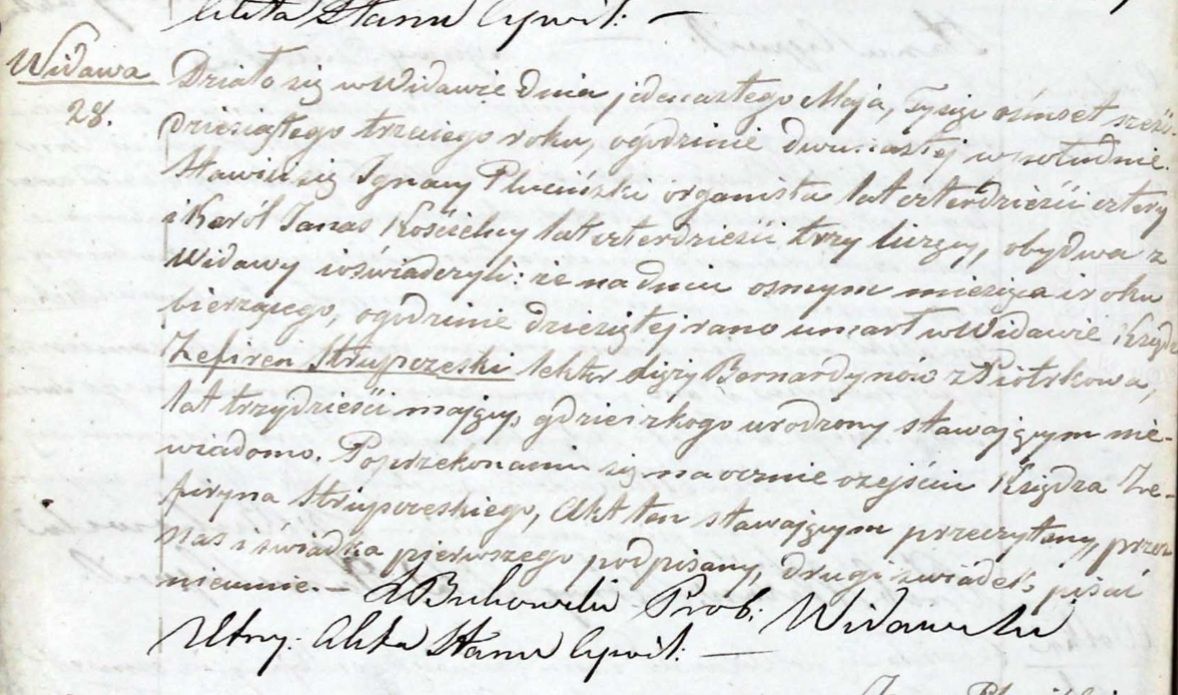 Akta Stanu Cywil: —
Widawa
28.
Działo się w Widawie dnia jedenastego Maja, Tysiąc ośmset sześć-
dziesiątego trzeciego roku, ogodzinie dwunastej wpołudnie.
Stawili się Ignacy Pluciński organista lat czterdzieści cztery
i Karól Janas Kościelny lat czterdzieści trzy liczący, obydwa z
Widawy i oświadczyli: że na dniu osmym miesiąca i roku
bierzącego, ogodzinie dziesiątej rano umarł w Widawie Ksiądz
Zefiren Strupczeski lektor Bernardynow z Piotrkowa,
lat trzydzieści mający, gdzie i zkogo urodzony stawającym nie-
wiadomo. Poprzekonaniu się naocznie ozejściu Księdza Ze-
firyna Strupczeskiego, Akt ten stawającym przeczytany, przez
Nas i świadka pierwszego podpisany, drugi świadek, pisać
nieumie. —
Prob: Widawski
Utrzy: Akta Stanu Cywil: —